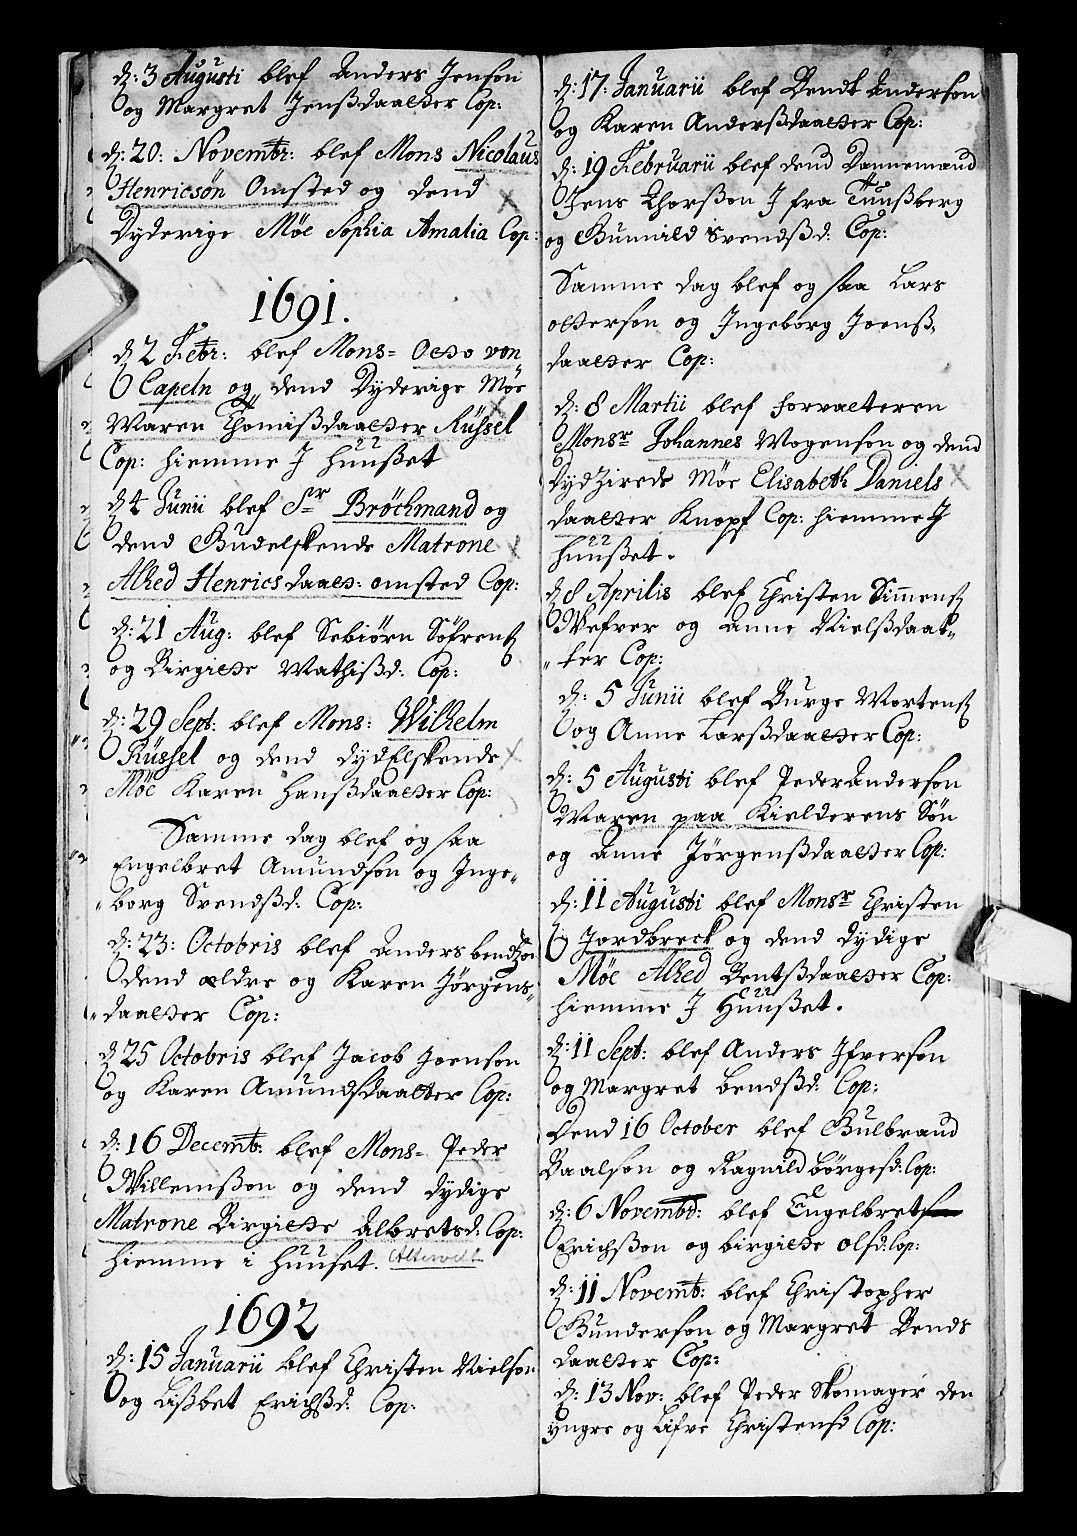 d: 3 Augusti blef Anders Jenson
og Margret Jenßdaatter Cop:
d: 20: Novembr: blef Mons Nicolaus
Henricsøn Omsted og dend
Dyderige Møe Sophia Amalia Cop:
1691.
d 2 Febr: blef Mons= Otto von
Capeln og dend Dyderige Møe
Maren Thomißdaatter Rüssel
Cop: hiemme J huußet
d 4 Junii blef Sr Bröchmand og
dend Gudelskende Matrone
Alhed Henrics daatt: omsted Cop:
d: 21 Aug: blef Sebiörn Söfrens
og Birgitte Mathisd: Cop:
d: 29 Sept: blef Mons: Wilhelm
Rüssel og dend dydElskende
Möe Karen Hanßdaatter Cop:
Samme dag blef og saa
Engelbret Amundson og Inge„
„borg Svendßd: Cop:
d: 23: Octobris blef Anders bendtzøn
dend ældre og Karen Jørgens„
„daatter Cop:
d 25 Octobris blef Jacob Joenson
og Karen Amundsdaatter Cop:
d: 16 Decemb: blef Mons= Peder
Willemßon og dend dydige
Matrone Birgitte Albretsd: Cop:
hiemme i huuset.
1692
d: 15 Januarii blef Christen Nielson
og Lißbet Erichßd: Cop:
d: 17: Januarii blef Bendt Anderson
og Karen Anderßdaatter Cop:
d: 19 Februarii blef dend Dannemand
Jens Thorßon J fra Tunßberg
og Gunnild Svendßd: Cop:
Samme dag blef og saa Lars
otterson og Ingeborg Joenß„
daatter Cop:
d: 8 Martii blef forvalteren
Monsr Johannes Mogenson og dend
Dydzirede Møe Elisabeth Daniels
daatter Knopf Cop: hiemme J
huußet.
d 8 Aprilis blef Christen Simens
Wefver og Anne Nielßdaat„
„ter Cop:
d: 5 Junii blef Burge Mortens
og Anne Larßdaatter Cop:
d: 5 Augusti blef Peder Anderson
Maren paa Kielderens Søn
og Anne Jørgenßdaatter Cop:
d: 11 Augusti blef Monsr Christen
Jordbreck og dend dydige
Møe Alhed Bentßdaatter Cop:
hiemme J Huußet.
d: 11 Sept: blef Anders Ifverson
og Margret Bendßd: Cop:
Dend 16 October blef Gulbrand
Paalson og Ragnild börgesd: Cop:
d: 6 Novembd: blef Engelbret
Erichßon og birgitte olsd: Cop:
d: 11 Novemb: blef Christopher
Gunderson og Margret Bends
daatter Cop:
d: 13 Nov: blef Peder Skomager den
yngre og Lifve Christensd Cop: